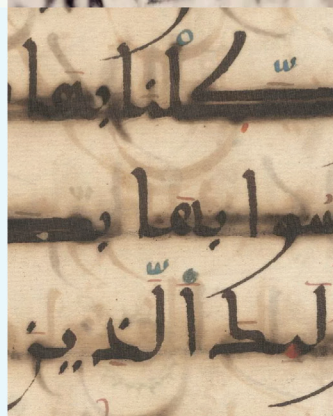 كّلنا بها
سوا بها بكـ
لئك الّذين